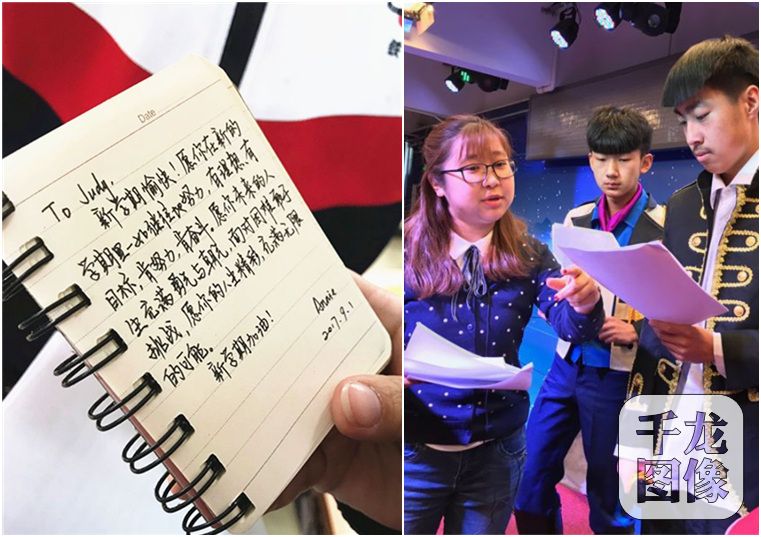 Date
To Judy,
新学期愉快!愿你在新的
学期里一如继往地努力,有理想,有
目标,肯努力,肯奋斗。愿你未来的人
生充满勇气与,面对困难于
挑战,愿你的人生精彩,充满无限
的可能。
新学期加油!
Annie
2017.9.1
千龙
图像